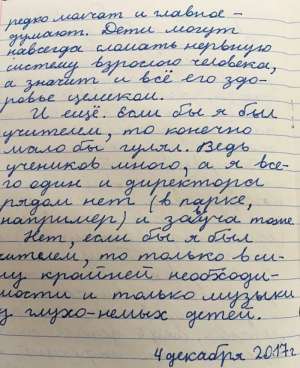 редко молчат и главное -
думают. Дети могут
навсегда сломать нервную
систему взрослого человека,
а значит и всё его здо-
ровье целиком.
И ещё. Если бы я был
учителем, то конечно
мало бы гулял. Ведь
учеников много, а я все-
го один и директора
рядом нет (в парке,
например) и завуча тоже.
Нет, если бы я был
учителем, то только в си-
лу крайней необходи-
мости и только музыки
у глухо-немых детей.
4 декабря 2017г